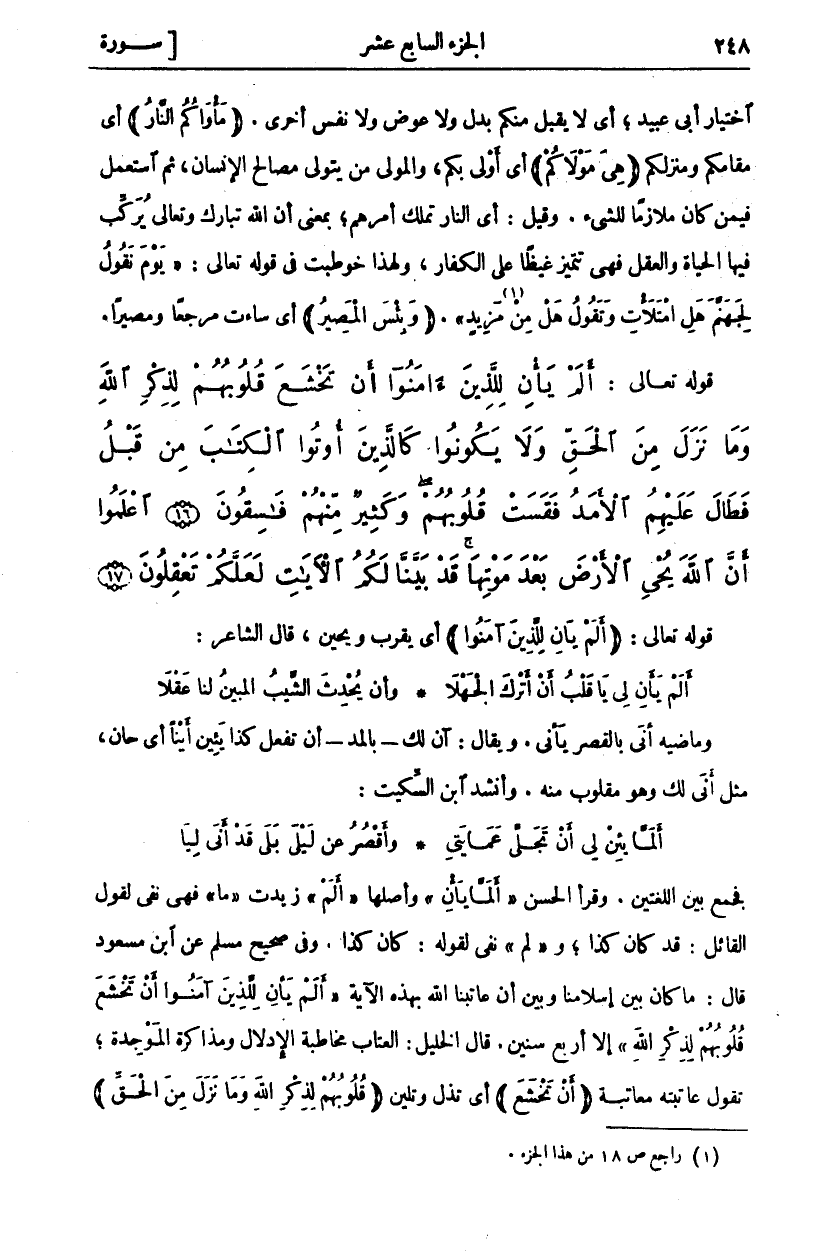 ٢٤٨ الجزء السابع عشر [ ســورة
ٱختيار أبى عبيد ؛ أى لا يقبل منكم بدل ولا عوض ولا نفس أخرى . ﴿ مَأْوَاكُمُ النَّارُ ﴾ أى
مقامكم ومنزلكم ﴿هِىَ مَوْلَاكُمْ﴾ أى أَوْلى بكم، والمولى من يتولى مصالح الإنسان، ثم ٱستعمل
فيمن كان ملازمًا للشىء . وقيل : أى النار تملك أمرهم؛ بمعنى أن الله تبارك وتعالى يُرَكِّب
فيها الحياة والعقل فهى تتميز غيظًا على الكفار ، ولهذا خوطبت فى قوله تعالى : « يَوْمَ نَقُولُ
لِجَهَنَّمَ هَلِ امْتَلَأْتِ وَتَقُولُ هَلْ مِنْ مَزِيدٍ (١)» . ﴿ وَبِئْسَ الْمَصِيرُ ﴾ أى ساءت مرجعًا ومصيرًا.
قوله تعـالى : أَلَمْ يَأْنِ لِلَّذِينَ ءَامَنُوٓا أَن تَخْشَـعَ قُلُوبُهُمْ لِذِكْرِ ٱللَّهِ
وَمَا نَزَلَ مِنَ ٱلْحَقِّ وَلَا يَكُونُوا كَالَّذِينَ أُوتُوا ٱلْكِتَـٰبَ مِن قَبْلُ
فَطَالَ عَلَيْهِمُ ٱلْأَمَدُ فَقَسَتْ قُلُوبُهُمْۖ وَكَثِيرٌ مِّنْهُمْ فَـٰسِقُونَ ١٦ ٱعْلَمُوا
أَنَّ ٱللَّهَ يُحْىِ ٱلْأَرْضَ بَعْدَ مَوْتِهَاۚ قَدْ بَيَّنَّا لَكُمُ ٱلْآيَـٰتِ لَعَلَّكُمْ تَعْقِلُونَ ١٧
قوله تعالى : ﴿ أَلَمْ يَانِ لِلَّذِينَ آمَنُوا ﴾ أى يقرب ويحين ، قال الشاعر :
أَلَمْ يَأْنِ لِى يَا قَلْبُ أَنْ أَتْرُكَ الْجَهْلَا * وأن يُحْدِثَ الشَّيبُ المبينُ لنا عَقْلَا
وماضيه أنَى بالقصر يَأْنى . ويقال : آن لك ــ بالمد ــ أن تفعل كذا يَئِين أَيْناً أى حان،
مثل أَنَى لك وهو مقلوب منه . وأنشد ٱبن السِّكيت :
أَلَمَّـا يَئِنْ لِى أَنْ تَجَلَّى عَمَـايَتِي * وأَقْصُرُ عن لَيْلَى بَلَى قَدْ أَنَى لِيَا
فجمع بين اللغتين . وقرأ الحسن « أَلَمَّـا يَأْنِ » وأصلها « أَلَمْ » زيدت «ما» فهى نفى لقول
القائل : قد كان كذا ؛ و « لم » نفى لقوله : كان كذا . وفى صحيح مسلم عن ٱبن مسعود
قال : ما كان بين إسلامنا وبين أن عاتبنا الله بهذه الآية « أَلَمْ يَأْنِ لِلَّذِينَ آمَنُـوا أَنْ تَخْشَعَ
قُلُوبُهُمْ لِذِكْرِ اللهِ » إلا أربع سنين . قال الخليل : العتاب مخاطبة الإدلال ومذاكرة المَوْجِدة ؛
تقول عاتبته معاتبـة ﴿ أَنْ تَخْشَعَ ﴾ أى تذل وتلين ﴿ قُلُوبُهُمْ لِذِكْرِ اللهِ وَمَا نَزَلَ مِنَ الْحَقِّ ﴾
(١) راجع ص ١٨ من هذا الجزء .